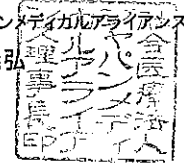 ンメディカルアライアンス
弘
会医療法人
ャパンメディ
ルアライア
理事長印